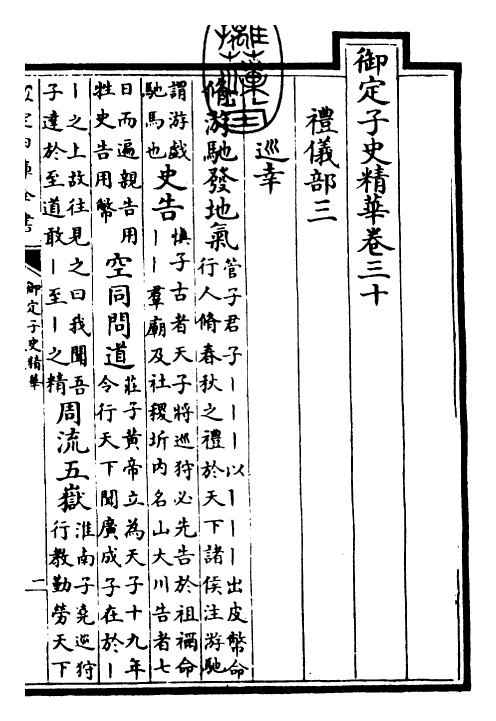 御定子史精華卷三十
禮儀部三
巡幸
脩游馳發地氣
管子君子丨丨丨以丨丨丨出皮幣命
行人脩春秋之禮於天下諸侯注游馳
謂游戲
馳馬也
史告
慎子古者天子將巡狩必先告於祖禰命
丨丨羣廟及社稷圻内名山大川告者七
日而遍親告用
牲史告用幣
空同問道
莊子黃帝立為天子十九年
令行天下聞廣成子在於丨
丨之上故往見之曰我聞吾
子達於至道敢丨至丨之精
周流五嶽
淮南子堯巡狩
行教勤勞天下
御定子史精華